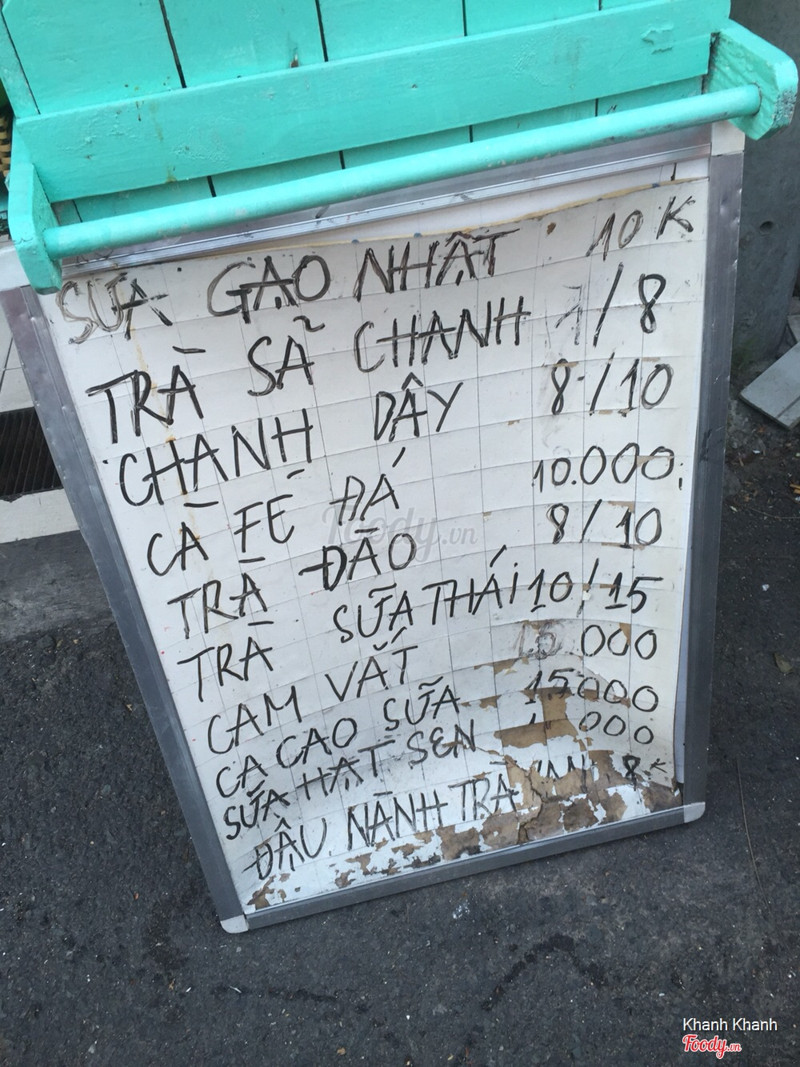 SỮA GẠO NHẬT 10K
TRÀ SẢ CHANH /8
CHANH DÂY 8/10
CÀ FÉ ĐÁ 10.000
TRÀ ĐÀO 8/10
Foody.vn
TRÀ SỮA THÁI 10/15
CAM VẮT 000
CA CAO SỮA 15000
SỮA HẠT SEN 000
ĐẬU NÀNH TRÀ 8K
Khanh Khanh
Foody.vn